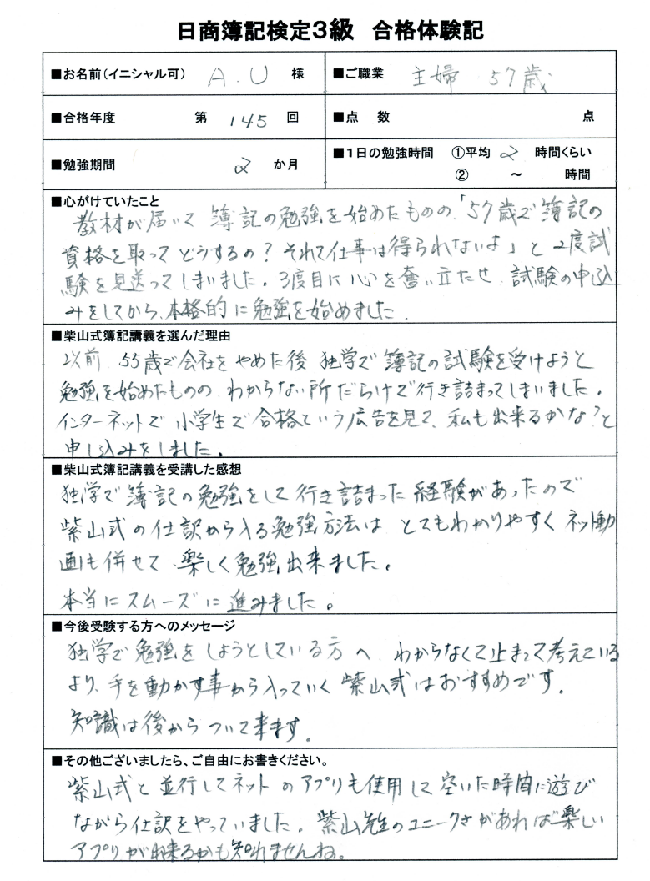 日商簿記検定3級 合格体験記
■お名前(イニシャル可) A.U 様 ■ご職業 主婦 57歳
■合格年度 第 145 回 ■点 数 点
■勉強期間 2 か月 ■1日の勉強時間 ①平均 2 時間くらい
② ～ 時間
■心がけていたこと
教材が届いて 簿記の勉強を始めたものの、「57歳で簿記の
資格を取ってどうするの? それで仕事は得られないよ」と2度試
験を見送ってしまいました。3度目に心を奮い立たせ、試験の申込
みをしてから、本格的に勉強を始めました。
■柴山式簿記講義を選んだ理由
以前、55歳で会社をやめた後 独学で簿記の試験を受けようと
勉強を始めたものの わからない所だらけで行き詰まってしまいました。
インターネットで 小学生で合格という広告を見て、私も出来るかな?と
申し込みをしました。
■柴山式簿記講義を受講した感想
独学で簿記の勉強をして行き詰まった経験があったので
柴山式の仕訳から入る勉強方法は とてもわかりやすく ネット動
画も併せて 楽しく勉強出来ました。
本当にスムーズに進みました。
■今後受験する方へのメッセージ
独学で勉強をしようとしている方へ わからなくて止まって考えている
より、手を動かす事から入っていく 柴山式はおすすめです。
知識は後からついて来ます。
■その他ございましたら、ご自由にお書きください。
柴山式と並行してネットのアプリも使用して 空いた時間に遊び
ながら仕訳をやっていました。柴山先生のユニークさがあれば楽しい
アプリが出来るかも知れませんね。